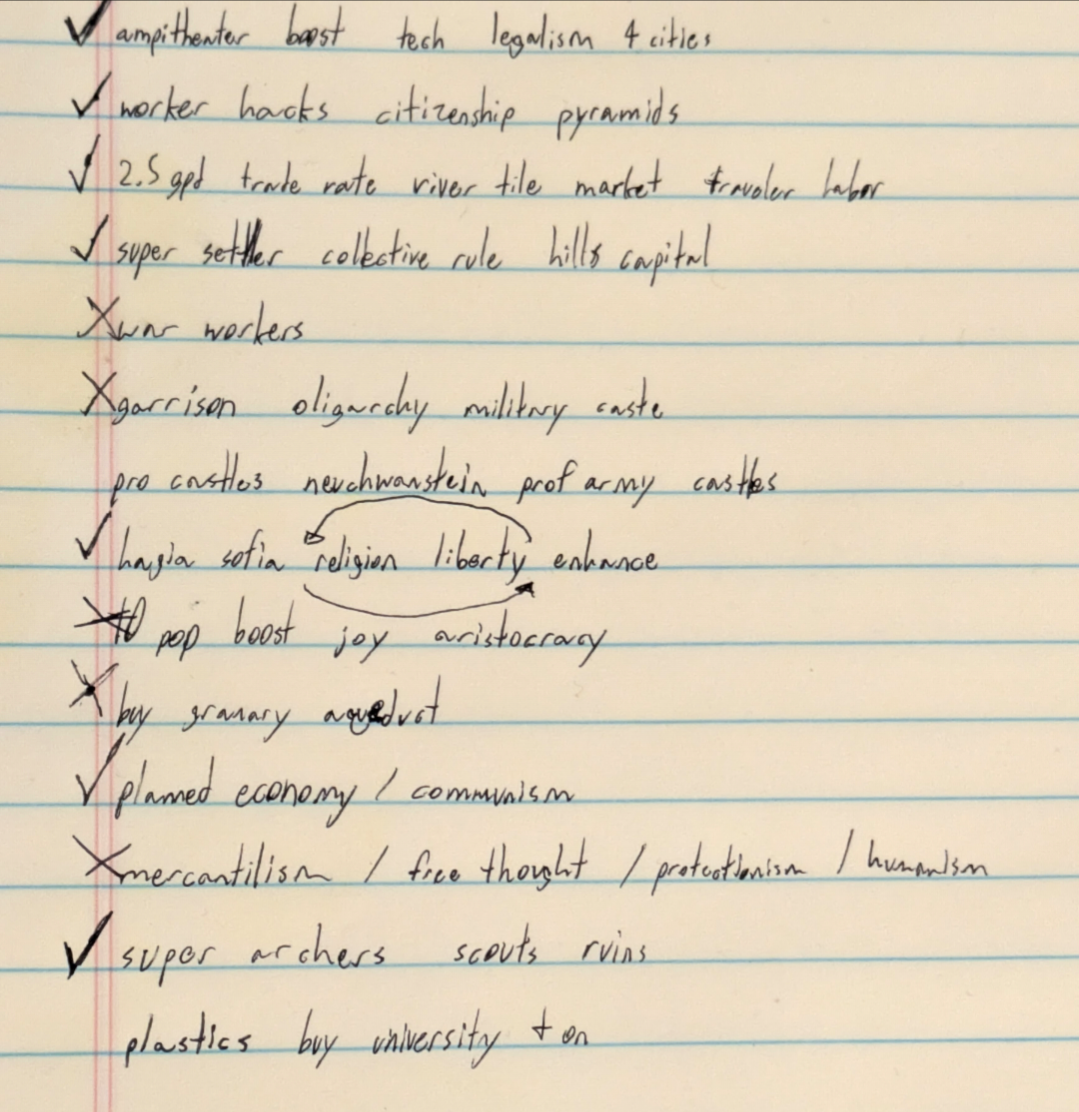 ✓ ampitheater boost tech legalism 4 cities
✓ worker hacks citizenship pyramids
✓ 2.5 gpd trade rate river tile market traveler labor
✓ super settler collective rule hills capital
X war workers
X garrison oligarchy military caste
pro castles neuchwanstein prof army castles
✓ hagia sofia religion liberty enhance
X 10 pop boost joy aristocracy
X buy granary aqueduct
✓ planned economy / communism
X mercantilism / free thought / protectionism / humanism
✓ super archers scouts ruins
plastics buy university + on